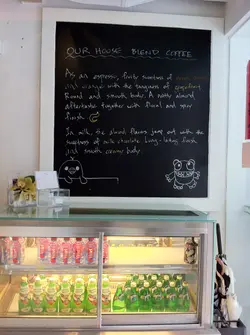 OUR HOUSE BLEND COFFEE
As an espresso, fruity sweetness of
and orange with the tanginess of
Round and smooth body. A nutty almond
aftertaste together with floral and
finish
In milk, the almond flavors jump out with the
sweetness of milk chocolate. Long-lasting finish
and smooth creamy body.